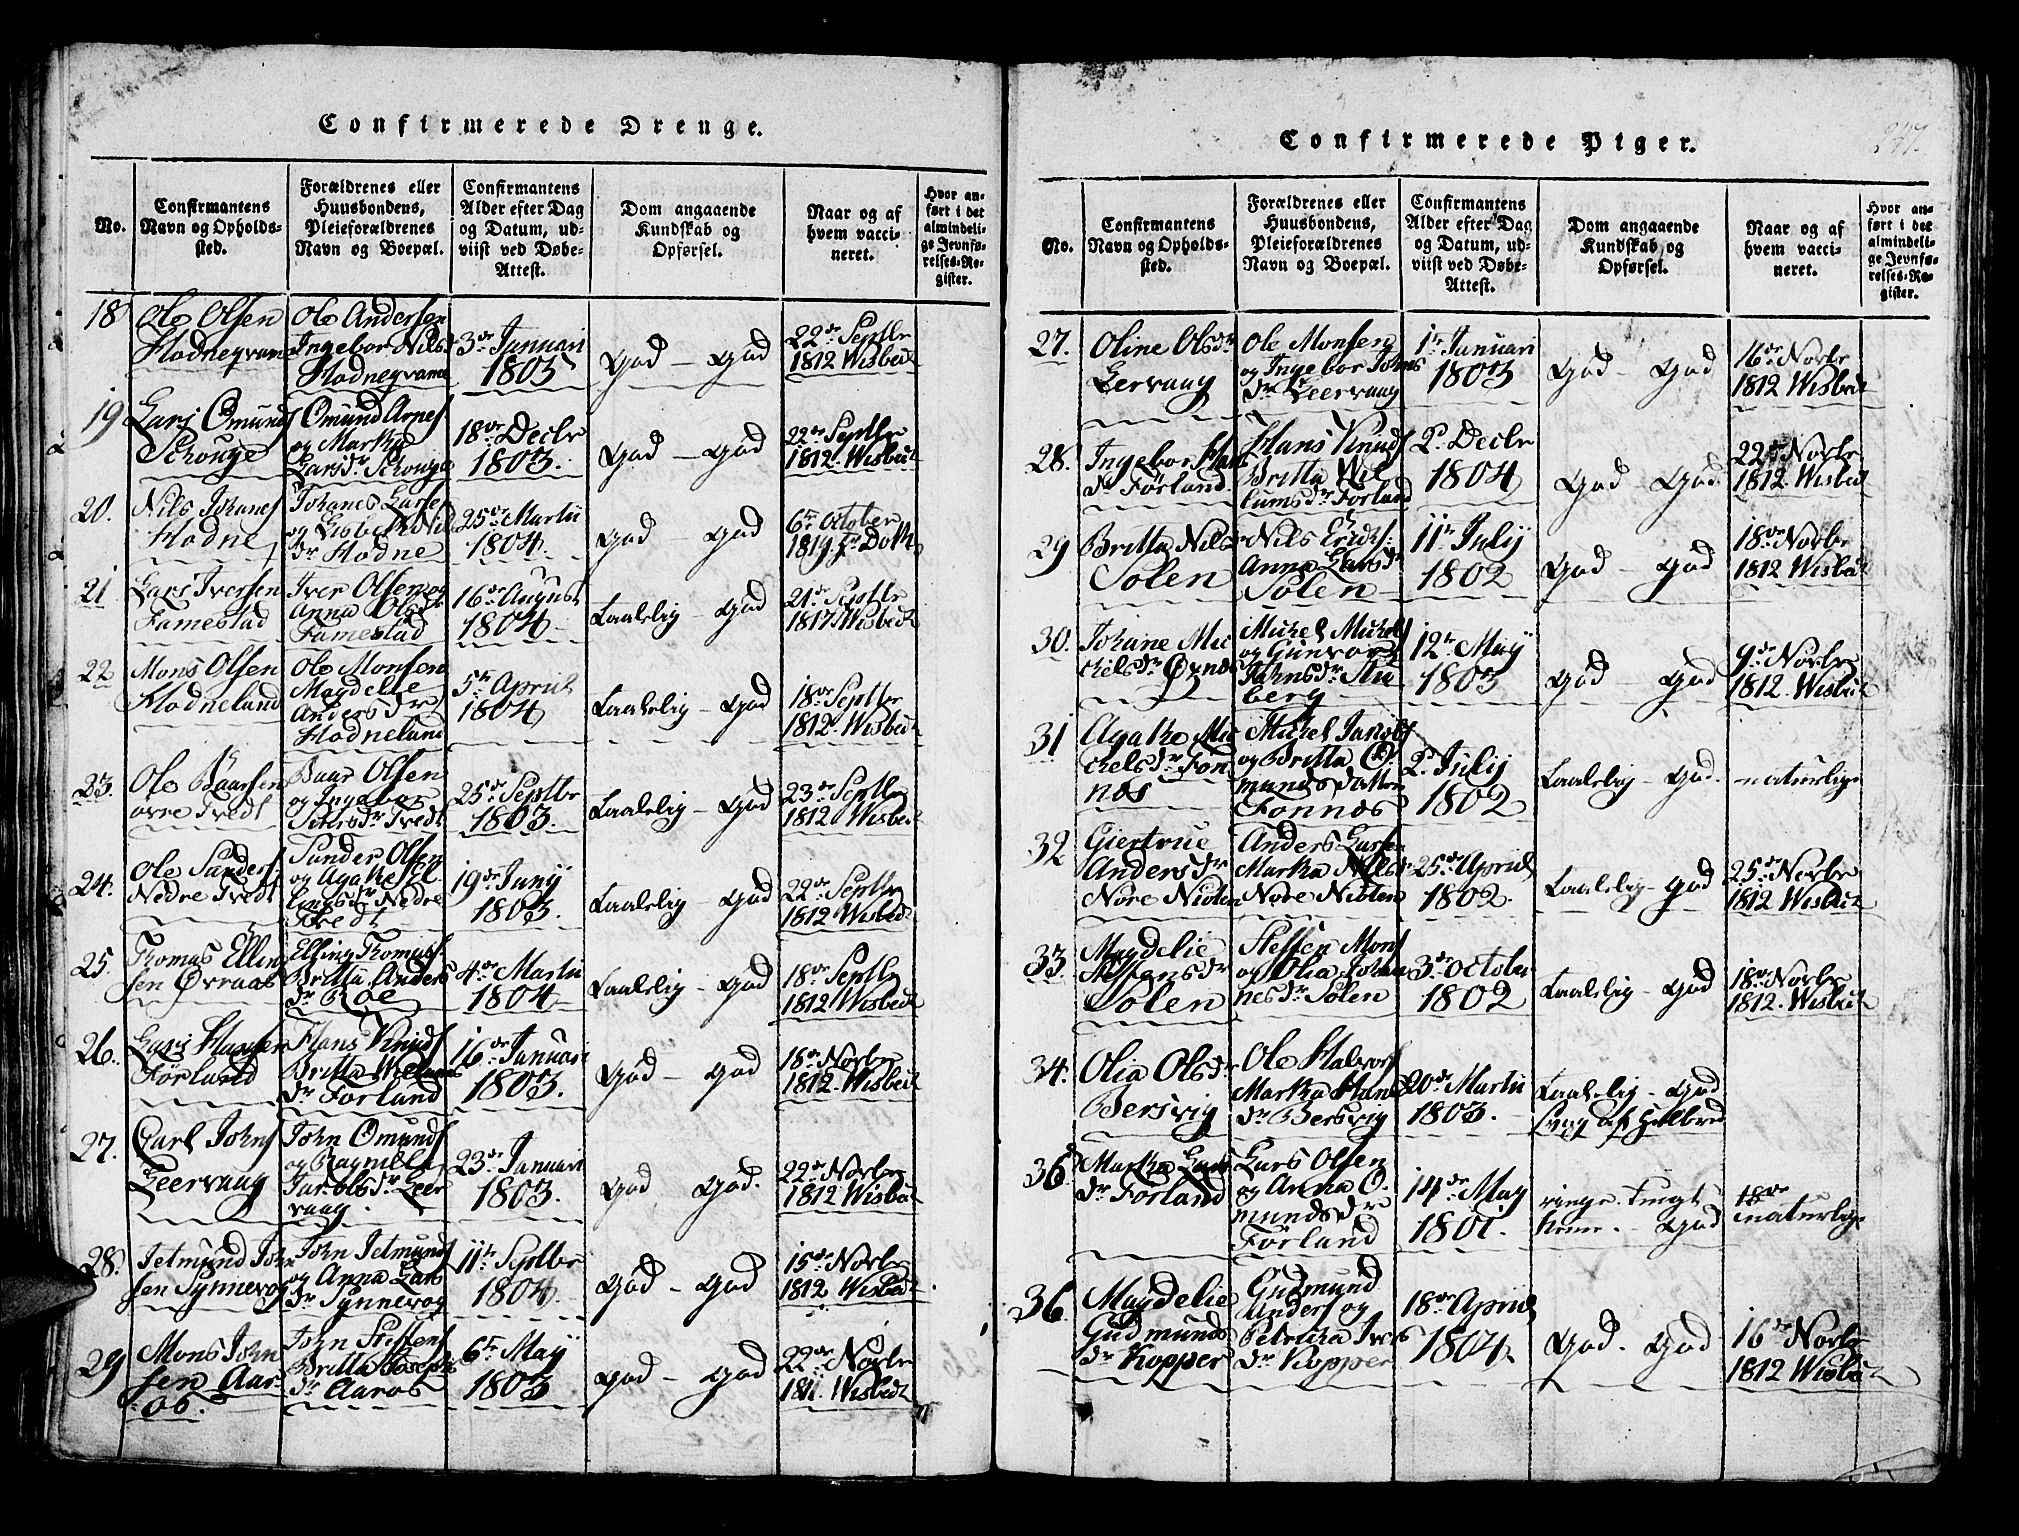 Confirmerede Drenge.
No.
Confirmantens
Navn og Opholds-
sted.
Forældrenes eller
Huusbondens,
Pleieforældrenes
Navn og Boepæl.
Confirmantens
Alder efter Dag
og Datum, ud-
viist ved Døbe-
Attest.
Dom angaaende
Kundskab og
Opførsel.
Naar og af
hvem vacci-
neret.
Hvor an-
ført i det
almindeli-
ge Jevnfø-
relses-Re-
gister.
18
Ole Olsen
Hodneqvam
Ole Andersen
Ingebor Nils
Hodneqvame
3de Januari
1803
God - God
22de Septbr
1812 Wisbech
19
Lars Omunds
Schouge
Omund Arnes
og Martha
Larsdr Schouge
18de Decbr
1803.
God - God
22de Septbr
1812. Wisbech
20.
Nils Johanes
Hodne
Johanes Larse
og Lisbeth Nils
dr Hodne
25de Martii
1804.
God - God
6te October
1819
21
Lars Iversen
Famestad
Iver Olsen og
Anna Olsdr
Famestad
16de August
1804
Taalelig - God
21de Septbr
1817 Wisbech
22
Mons Olsen
Hodneland
Ole Monsen
Magdelie
Andersdr
Hodneland
5te April
1804
Taalelig - God
18de Septbr
1812. Wisbech
23.
Ole Baarsen
øvre Tvedt
Baar Olsen
og Ingebor
Tvedt
25de Septbr
1803.
Taalelig - God
23de Septbr
1812 Wisbech
24.
Ole Sanders
Nedre Tvedt
Sander Olsen
og Agathe El
lingsdr Nedre
Tvedt
19de Junij
1803.
Taalelig - God
22de Septbr
1812 Wisbech
25.
Thomas Ellin
sen Øvraas
Elling Thomas
Britta Anders
dr Røe
4de Martii
1804
Taalelig - God
18de Septbr
1812 Wisbech
26.
Lars Hansen
Førland
Hans Knuds
Britta Welums
dr Førland
16de Januari
1803.
God - God
18de Novbr
1812. Wisbech
27.
Carl Johns
Leervaag
John Omunds
og Ragnilla
Jacobsdr Leer
vaag.
23de Januari
1803.
God God.
22de Novbr
1812 Wisbech
28.
Jetmund John
sen Synnevog
John Jetmunds
og Anna Lars
dr Synnevog
11te Septbr
1804.
God - God
15de Novbr
1812 Wisbech
29
Mons John
sen Aar-
øs.
John Steffens
Britta Joseph
dr Aarøs
6te May
1803
God - God
22de Novbr
1811. Wisbech
Confirmerede Piger.
247.
No.
Confirmantens
Navn og Opholds-
sted.
Forældrenes eller
Huusbondens,
Pleieforældrenes
Navn og Boepæl.
Confirmantens
Alder efter Dag
og Datum, ud-
viist ved Døbe-
Attest.
Dom angaaende
Kundskab og
Opførsel.
Naar og af
hvem vacci-
neret.
Hvor an-
ført i det
almindeli-
ge Jevnfø-
relses-Re-
gister.
27.
Oline Olsdr
Leervaag
Ole Monsen
og Ingebor Johns
dr Leervaag
1te Januari
1803
God - God
16de Novbr
1812 Wisbech
28.
Ingebor Hans
dr Førland.
Hans Knuds
Britta Wel
lumsdr Førland
2d Decbr
1804
God God
22de Novbr
1812. Wisbech
29
Britta Nils
Solen
Nils Erichs
Anna Larsdr
Solen
11te Julij
1802
God - God
18de Novbr
1812 Wisbech
30.
Johane Mic
chelsdr
Michel Michels
og Gunvor
Johnsdr
berg
12te May
1803
God - God
9de Novbr
1812. Wisbech
31
Agathe Mic
chelsdr Fon
næs
Michel Jacobs
og Britta O.
mundsdatter
Fonnæs
2d Julij
1802
Taalelig - God.
naturlige
32
Giertrue
Andersdr
Nore Niolen
Anders Larsen
Martha Nilsdr
Nore Niolen
25de April
1802.
Taalelig - God
25de Novbr
1812. Wisbech
33.
Magdelie
Steffensdr
Solen
Steffen Mons
og Olia Johan
nesdr Solen
3de October
1802
Taalelig - God
18de Novbr
1812. Wisbech
34.
Olia Olsdr
Bersvig
Ole Halvors
Martha Hans
dr Bersvig
20de Martii
1803.
Taalelig - God
Svag af Helbred
36
Martha Lars
dr Førland
Lars Olsen
og Anna O.
mundsdr
Førland
14de May
1801.
ringe.
God
18de
naturlige
36.
Magdelie
Gudmunds
dr Kopper
Gudmund
Anders og
Petricha Ivers
dr Kopper
18de April
1804.
God. God
16de Novbr
1812 Wisbech